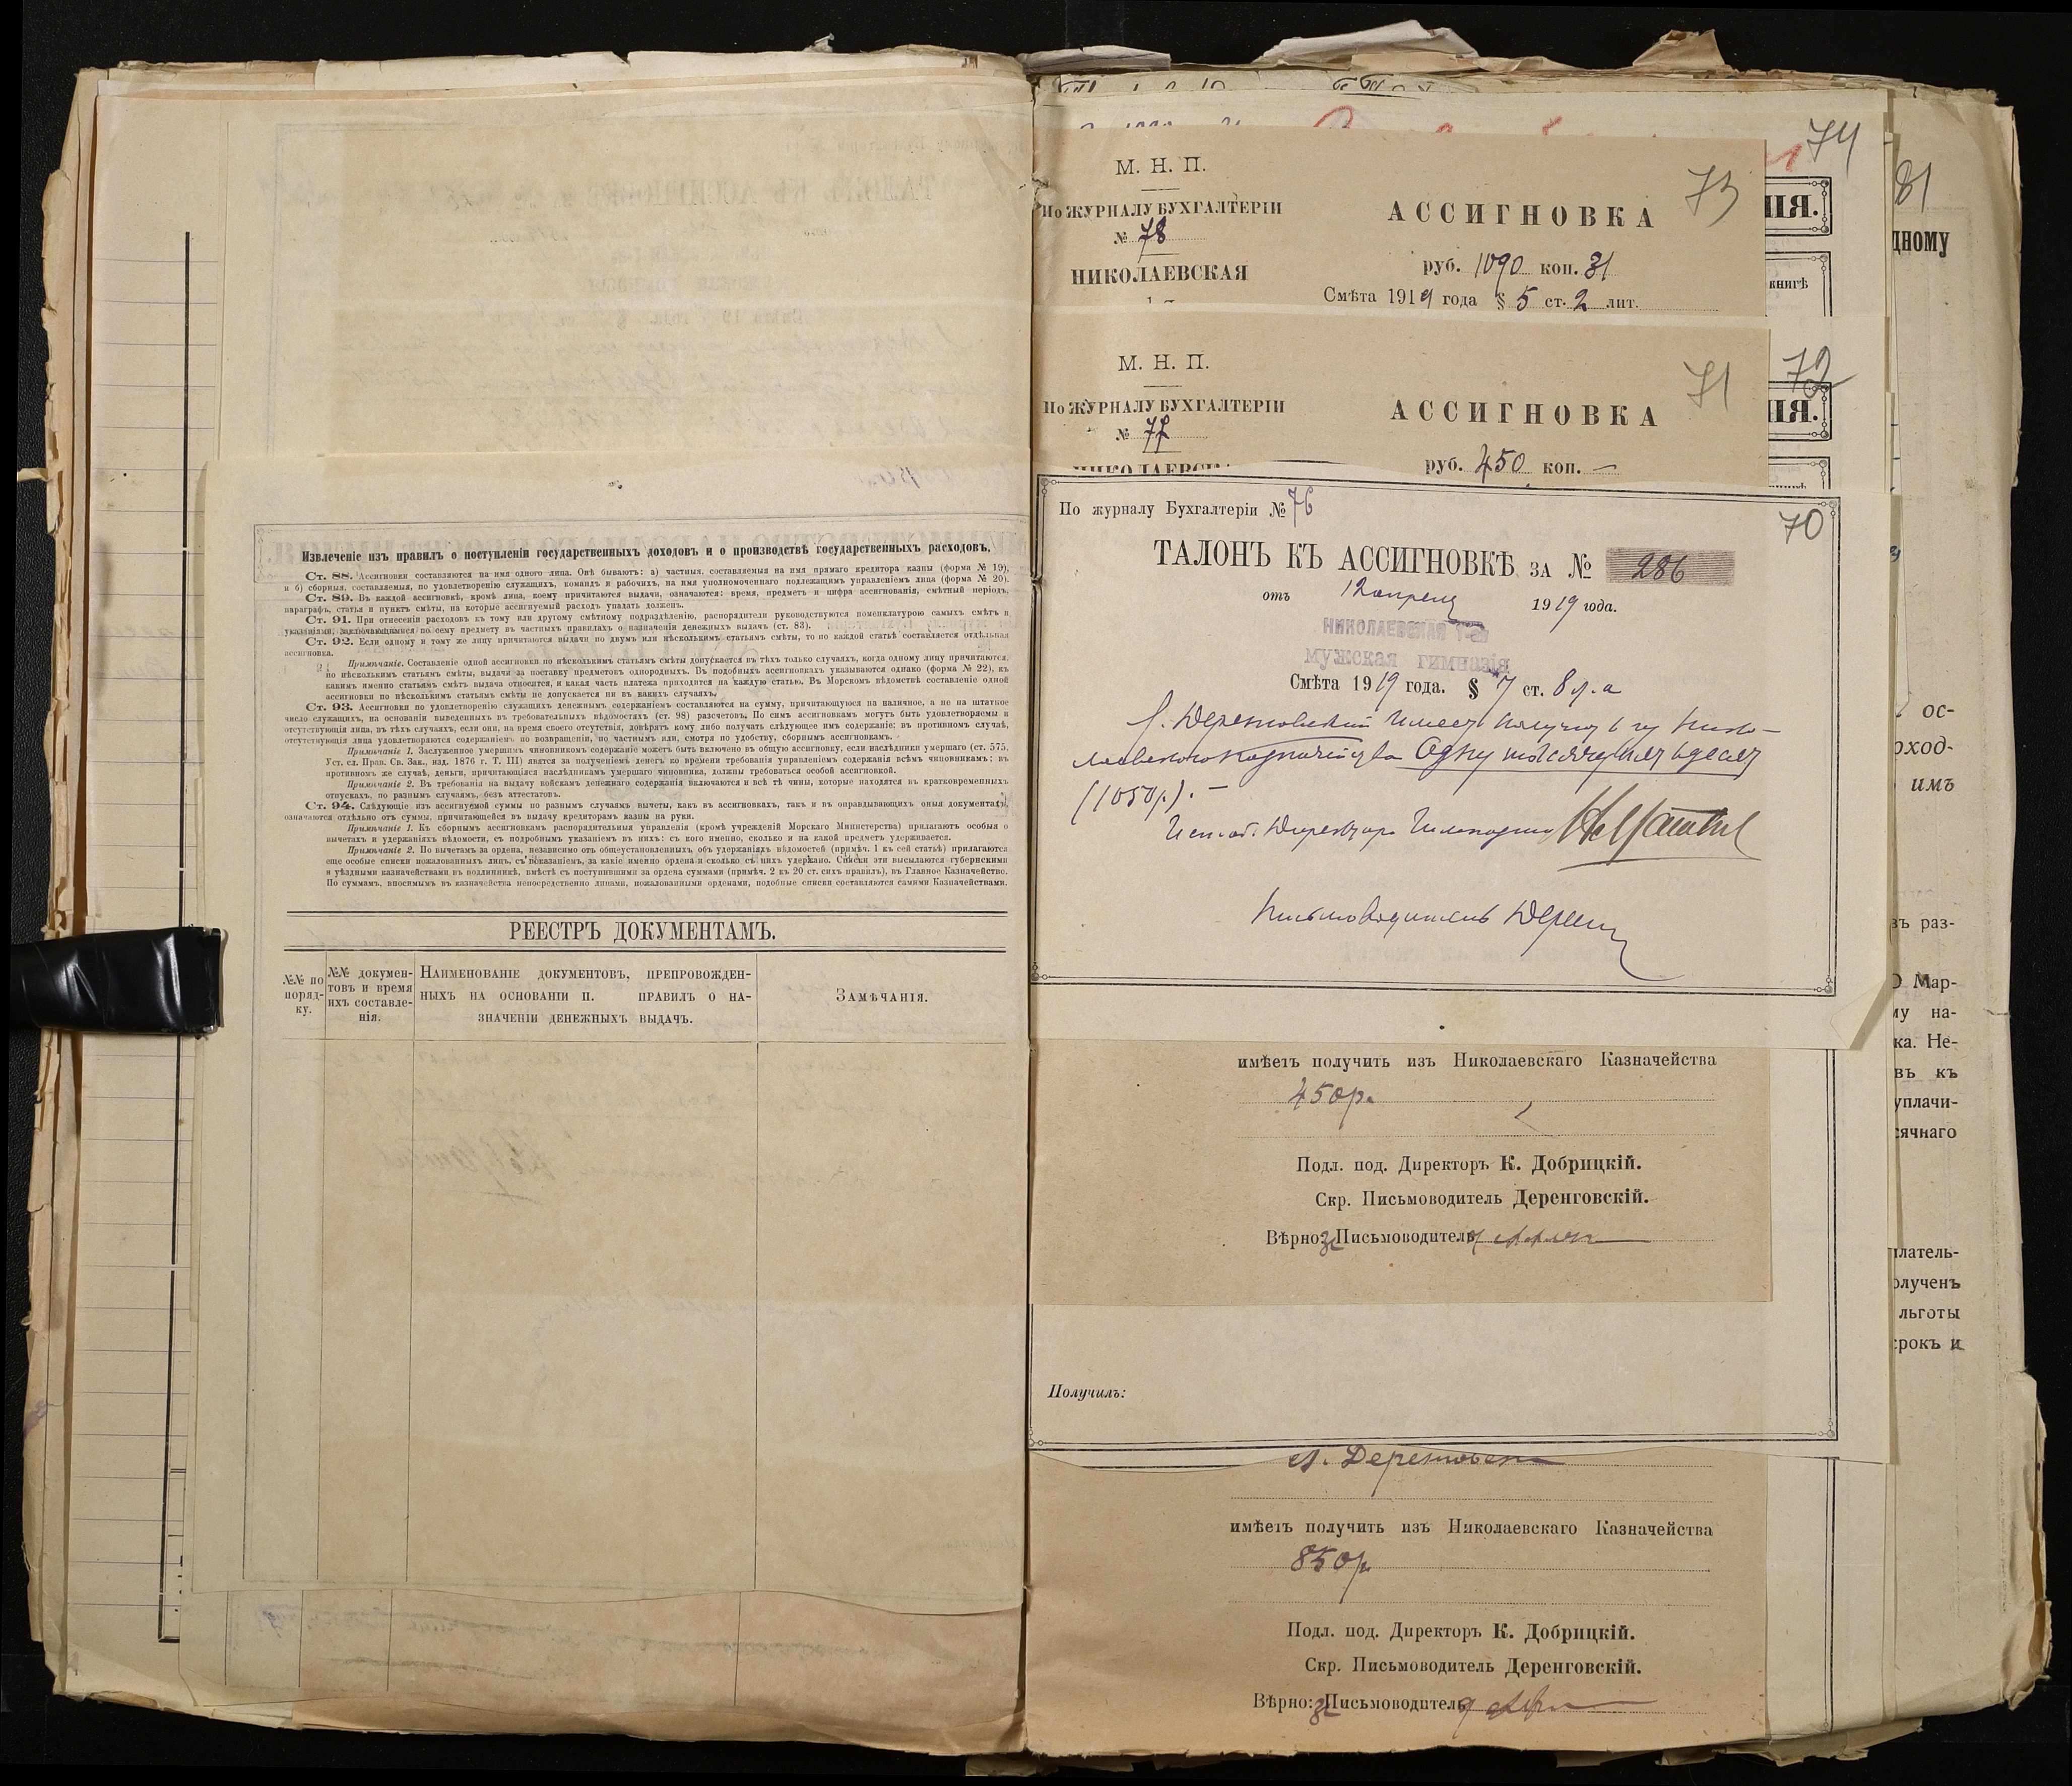 Извлеченіе изъ правилъ о поступленіи государственныхъ доходовъ и о производствѣ государственныхъ расходовъ.
Ст. 88. Ассигновки составляются на имя одного лица. Онѣ бываютъ: а) частныя, составляемыя на имя прямаго кредитора казны (форма № 19),
и б) сборныя, составляемыя, по удовлетворенію служащихъ, командъ и рабочихъ, на имя уполномоченнаго подлежащимъ управленіемъ лица (форма № 20).
Ст. 89. Въ каждой ассигновкѣ, кромѣ лица, коему причитаются выдачи, означаются: время, предметъ и цифра ассигнованія, смѣтный періодъ,
параграфъ, статья и пунктъ смѣты, на которые ассигнуемый расходъ упадать долженъ.
Ст. 91. При отнесеніи расходовъ къ тому или другому смѣтному подраздѣленію, распорядители руководствуются номенклатурою самыхъ смѣтъ и
указаніями, заключающимися по сему предмету въ частныхъ правилахъ о назначеніи денежныхъ выдачъ (ст. 83).
Ст. 92. Если одному и тому же лицу причитаются выдачи по двумъ или нѣсколькимъ статьямъ смѣты, то по каждой статьѣ составляется отдѣльная
ассигновка.
Примѣчаніе. Составленіе одной ассигновки по нѣсколькимъ статьямъ смѣты допускается въ тѣхъ только случаяхъ, когда одному лицу причитаются,
по нѣсколькимъ статьямъ смѣты, выдачи за поставку предметовъ однородныхъ. Въ подобныхъ ассигновкахъ указываются однако (форма № 22), къ
какимъ именно статьямъ смѣтъ выдача относится, и какая часть платежа приходится на каждую статью. Въ Морскомъ вѣдомствѣ составленіе одной
ассигновки по нѣсколькимъ статьямъ смѣты не допускается ни въ какихъ случаяхъ.
Ст. 93. Ассигновки по удовлетворенію служащихъ денежнымъ содержаніемъ составляются на сумму, причитающуюся на наличное, а не на штатное
число служащихъ, на основаніи выведенныхъ въ требовательныхъ вѣдомостяхъ (ст. 98) разсчетовъ. По симъ ассигновкамъ могутъ быть удовлетворяемы и
отсутствующія лица, въ тѣхъ случаяхъ, если они, на время своего отсутствія, довѣрятъ кому либо получать слѣдующее имъ содержаніе; въ противномъ случаѣ,
отсутствующія лица удовлетворяются содержаніемъ по возвращеніи, по частнымъ или, смотря по удобству, сборнымъ ассигновкамъ.
Примѣчаніе 1. Заслуженное умершимъ чиновникомъ содержаніе можетъ быть включено въ общую ассигновку, если наслѣдники умершаго (ст. 575,
Уст. сл. Прав. Св. Зак., изд. 1876 г. Т. III) явятся за полученіемъ денегъ ко времени требованія управленіемъ содержанія всѣмъ чиновникамъ; въ
противномъ же случаѣ, деньги, причитающіяся наслѣдникамъ умершаго чиновника, должны требоваться особой ассигновкой.
Примѣчаніе 2. Въ требованія на выдачу войскамъ денежнаго содержанія включаются и всѣ тѣ чины, которые находятся въ кратковременныхъ
отпускахъ, по разнымъ случаямъ, безъ аттестатовъ.
Ст. 94. Слѣдующіе изъ ассигнуемой суммы по разнымъ случаямъ вычеты, какъ въ ассигновкахъ, такъ и въ оправдывающихъ оныя документахъ,
означаются отдѣльно отъ суммы, причитающейся въ выдачу кредиторамъ казны на руки.
Примѣчаніе 1. Къ сборнымъ ассигновкамъ распорядительныя управленія (кромѣ учрежденій Морскаго Министерства) прилагаютъ особыя о
вычетахъ и удержаніяхъ вѣдомости, съ подробнымъ указаніемъ въ нихъ: съ кого именно, сколько и на какой предметъ удерживается.
Примѣчаніе 2. По вычетамъ за ордена, независимо отъ общеустановленныхъ, объ удержаніяхъ вѣдомостей (примѣч. 1 къ сей статьѣ) прилагаются
еще особые списки пожалованныхъ лицъ, съ показаніемъ, за какіе именно ордена и сколько съ нихъ удержано. Списки эти высылаются губернскими
и уѣздными казначействами въ подлинникѣ, вмѣстѣ съ поступившими за ордена суммами (примѣч. 2 къ 20 ст. сихъ правилъ), въ Главное Казначейство.
По суммамъ, вносимымъ въ казначейства непосредственно лицами, пожалованными орденами, подобные списки составляются самими Казначействами.
РЕЕСТРЪ ДОКУМЕНТАМЪ.
№№ по поряд-ку.
№№ докумен-товъ и время ихъ составле-нія.
Наименованіе документовъ, препровожден-ныхъ на основаніи п. правилъ о на-значеніи денежныхъ выдачъ.
Замѣчанія.
74
81
М. Н. П.
73
По ЖУРНАЛУ БУХГАЛТЕРІИ
№ 78
АССИГНОВКА
НИКОЛАЕВСКАЯ
руб. 1090 коп. 31
Смѣта 1919 года § 5 ст. 2 лит.
ІЯ.
дному
книгѣ
М. Н. П.
71
72
По ЖУРНАЛУ БУХГАЛТЕРІИ
№ 77
АССИГНОВКА
ІЯ.
НИКОЛАЕВСК
руб. 450 коп. —
По журналу Бухгалтеріи № 76
70
ТАЛОНЪ КЪ АССИГНОВКѢ ЗА № 286
отъ 12 апреля 1919 года.
НИКОЛАЕВСКАЯ 1-ая
мужская гимназія
Смѣта 1919 года. § 7 ст. 8 л. а
А. Деренговский имеет получить из Нико-
лаевского казначейства Одну тысячу пятьдесят
(1050р). —
Исп. об. Директора Гимназии
Письмоводитель Дерен
имѣетъ получить изъ Николаевскаго Казначейства
450р.
Подл. под. Директоръ К. Добрицкій.
Скр. Письмоводитель Деренговскій.
Вѣрно: за Письмоводителя
Получилъ:
А. Деренговск
имѣетъ получить изъ Николаевскаго Казначейства
850р
Подл. под. Директоръ К. Добрицкій.
Скр. Письмоводитель Деренговскій.
Вѣрно: за Письмоводителя
ос-
оход-
имъ
въ раз-
О Мар-
му на-
ка. Не-
въ къ
уплачи-
сячнаго
платель-
олученъ
льготы
срокъ и